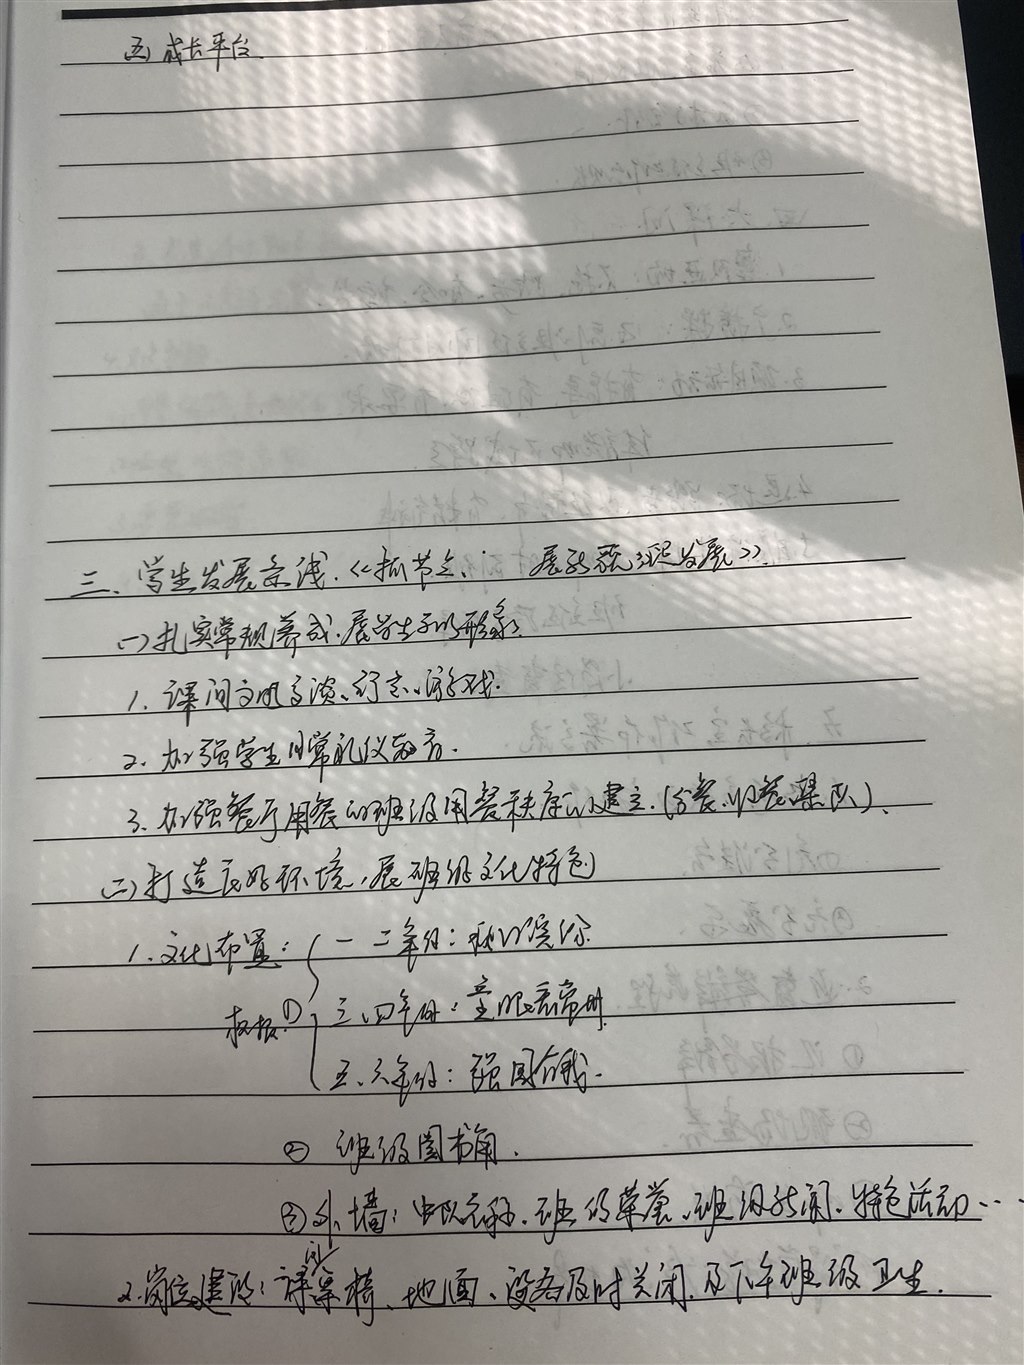 (五) 成长平台.
三、学生发展条线.《抓节点, 展新颜, 促发展》.
(一) 扎实常规养成,展学生子的形象.
1. 课间文明交谈、行走、游戏.
2. 加强学生日常礼仪教育.
3. 加强餐厅用餐的班级用餐秩序的建立.(分餐、收餐、路队).
(二) 打造良好环境,展班级文化特色
1. 文化布置:
板报① 一二年级:我的
三、四年级:童眼看常州.
五、六年级:强国有我.
② 班级图书角.
③ 外墙:中队名称、班级荣誉、班级新闻、特色活动…
2. 岗位建设:课间 桌椅、地面、设备及时关闭.及下午班级卫生.